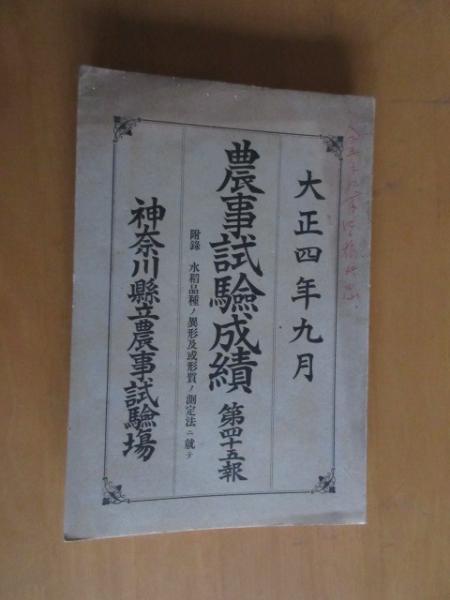 大正四年九月
農事試驗成績 第四十五報
附錄 水稻品種ノ異形及或形質ノ測定法ニ就テ
神奈川縣立農事試驗場